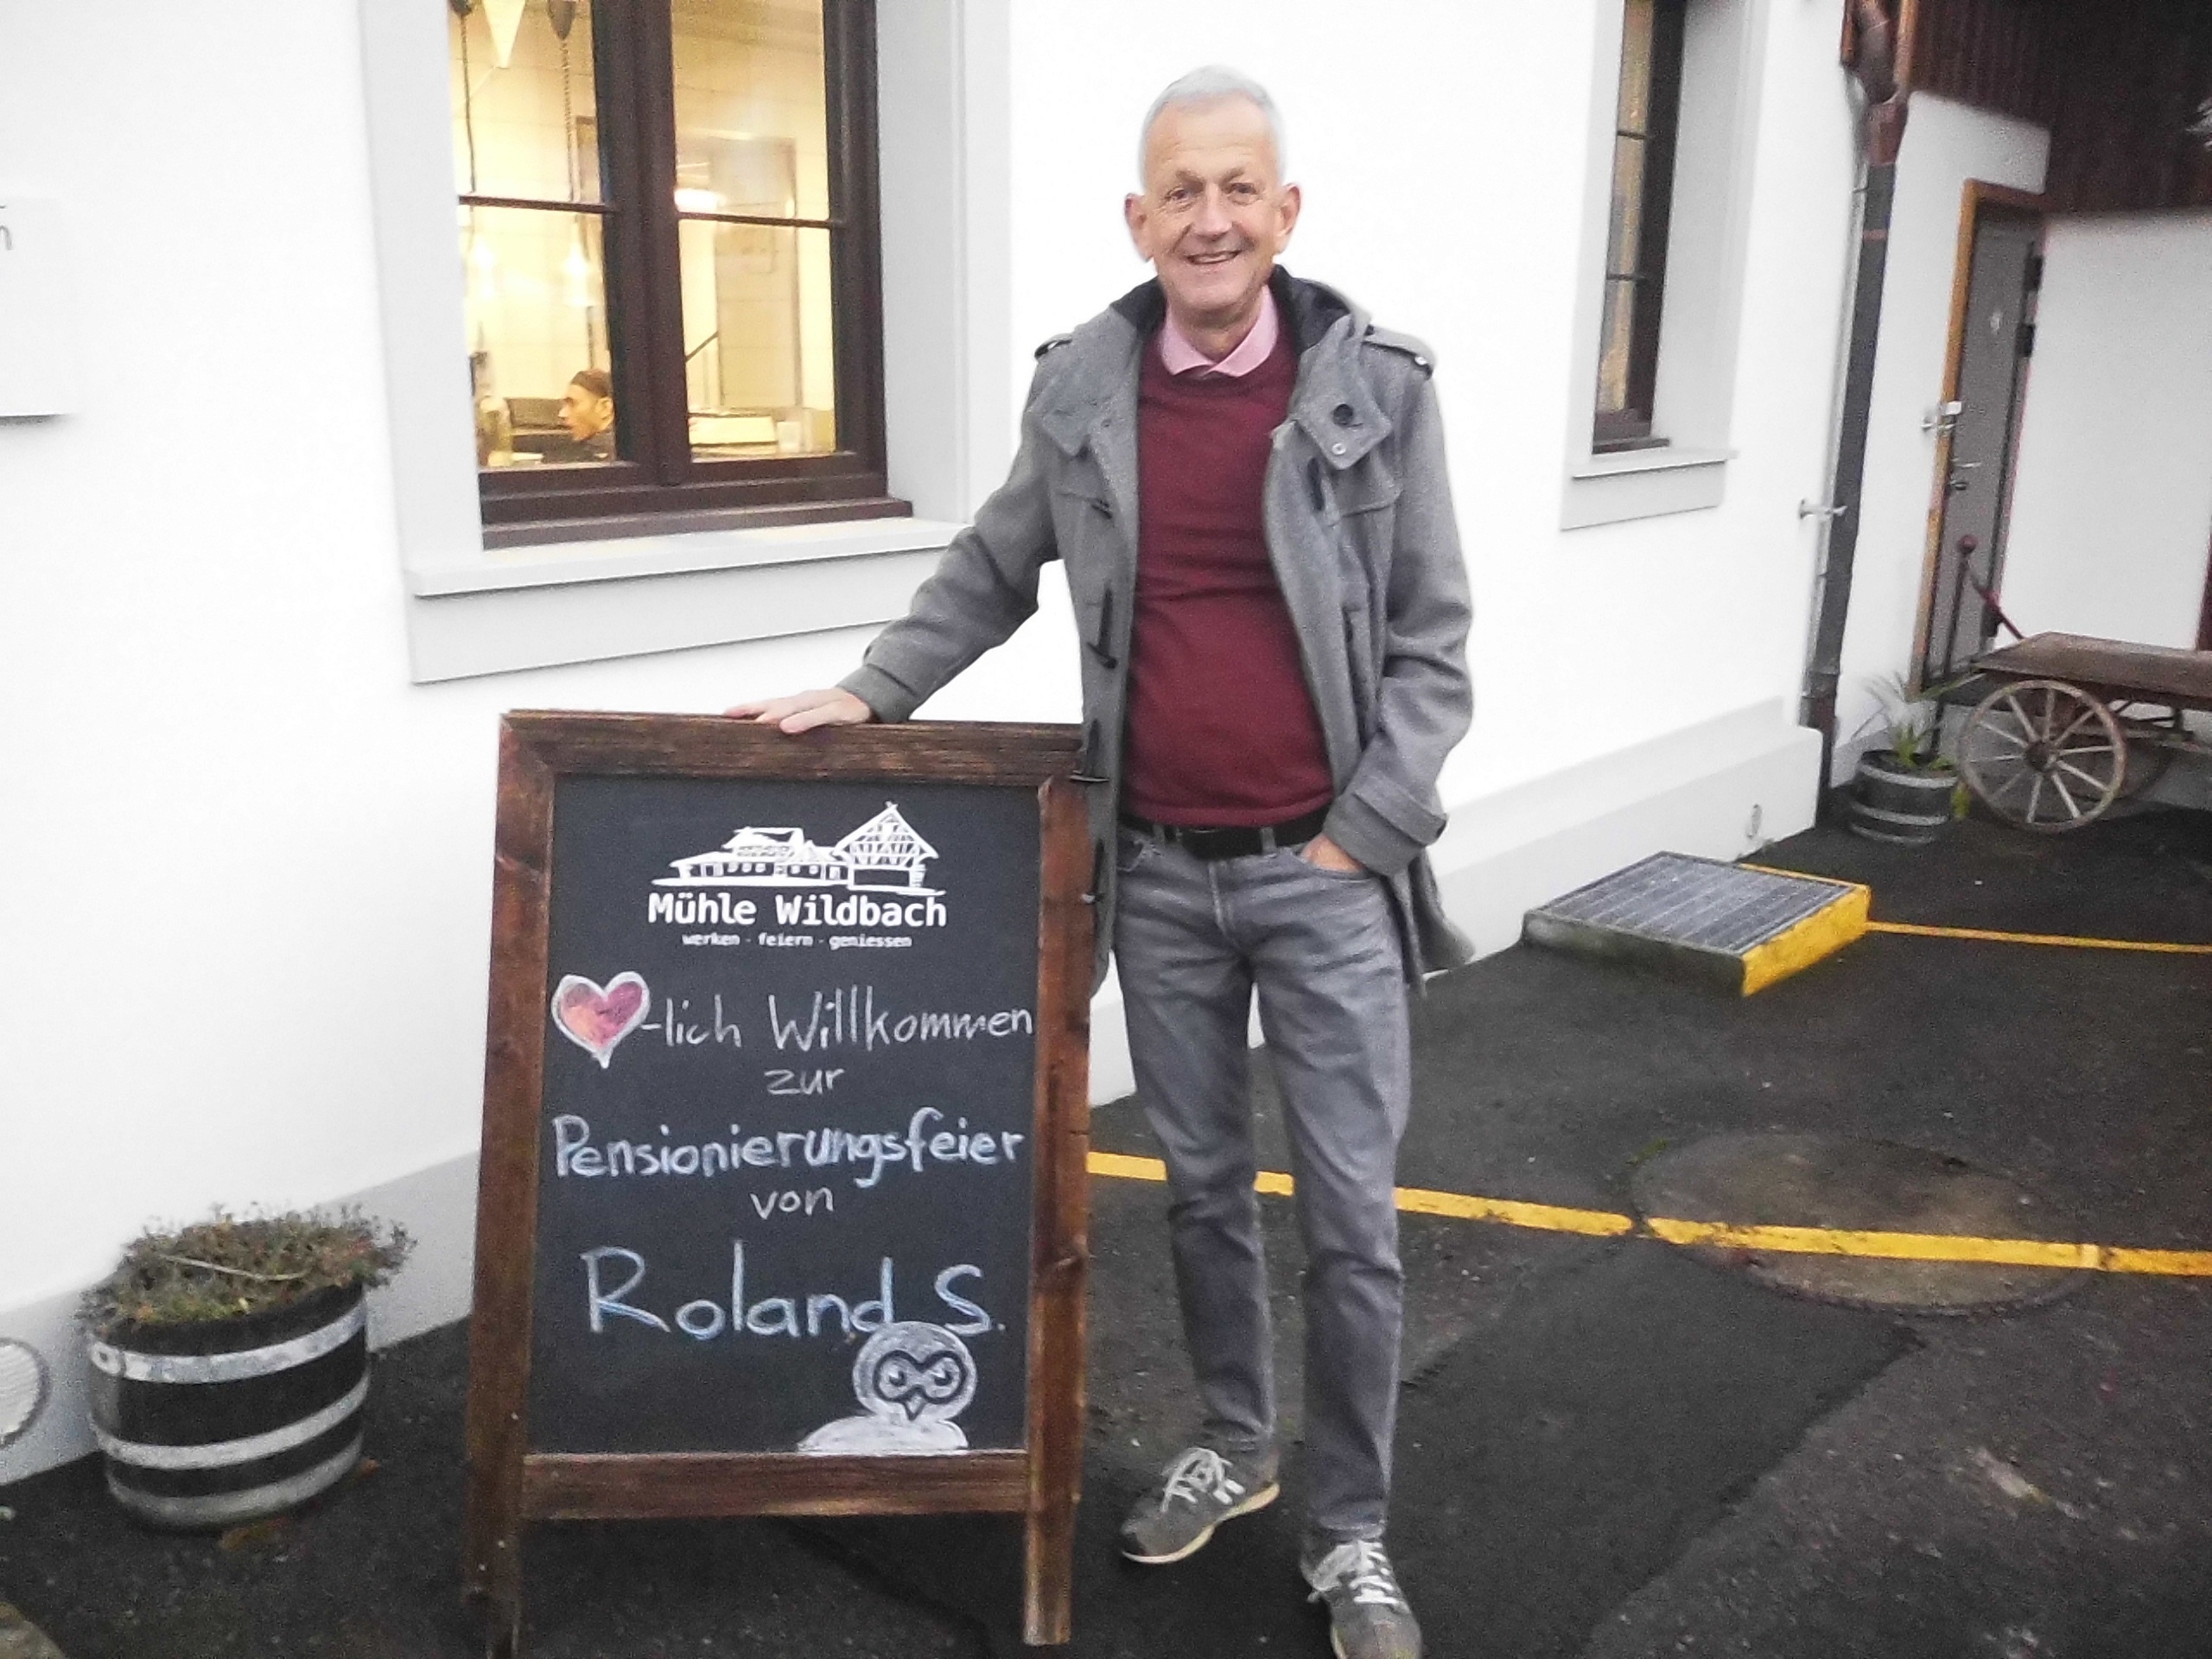 Mühle Wildbach
werken - feiern - geniessen
-lich Willkommen
zur
Pensionierungsfeier
von
Roland S.